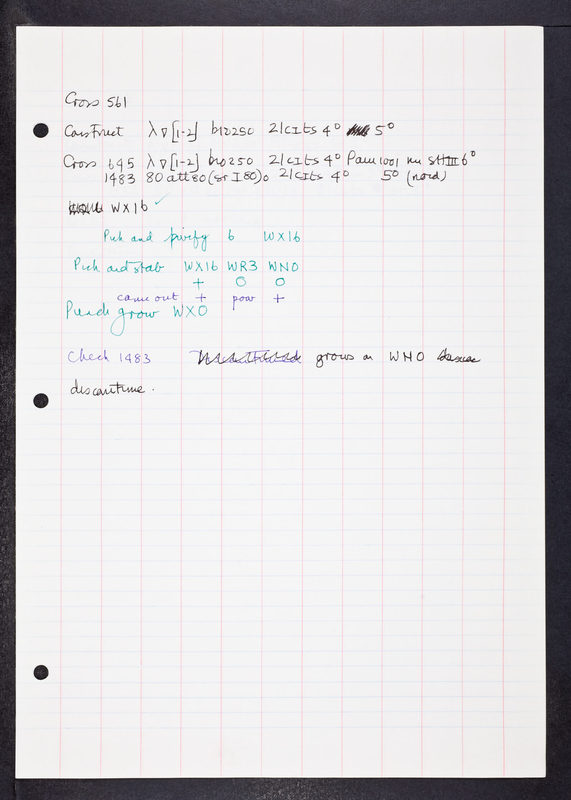 Cross 561
Construct λ ∇ [1-2] b12250 21CITS 4° 5°
Cross 645 λ ∇ [1-2] b10250 21CITS 4° Pam1001 nu SHIII 6°
1483 80 att80 (or I 80)o 21CITS 4° 5° (nard)
WX16 ✓
Pick and purify 6 WX16
Pick and stab WX16 WR3 WNO
+ O O
came out + poor +
Punch grow WXO
Check 1483 grows on WNO
discontinue.